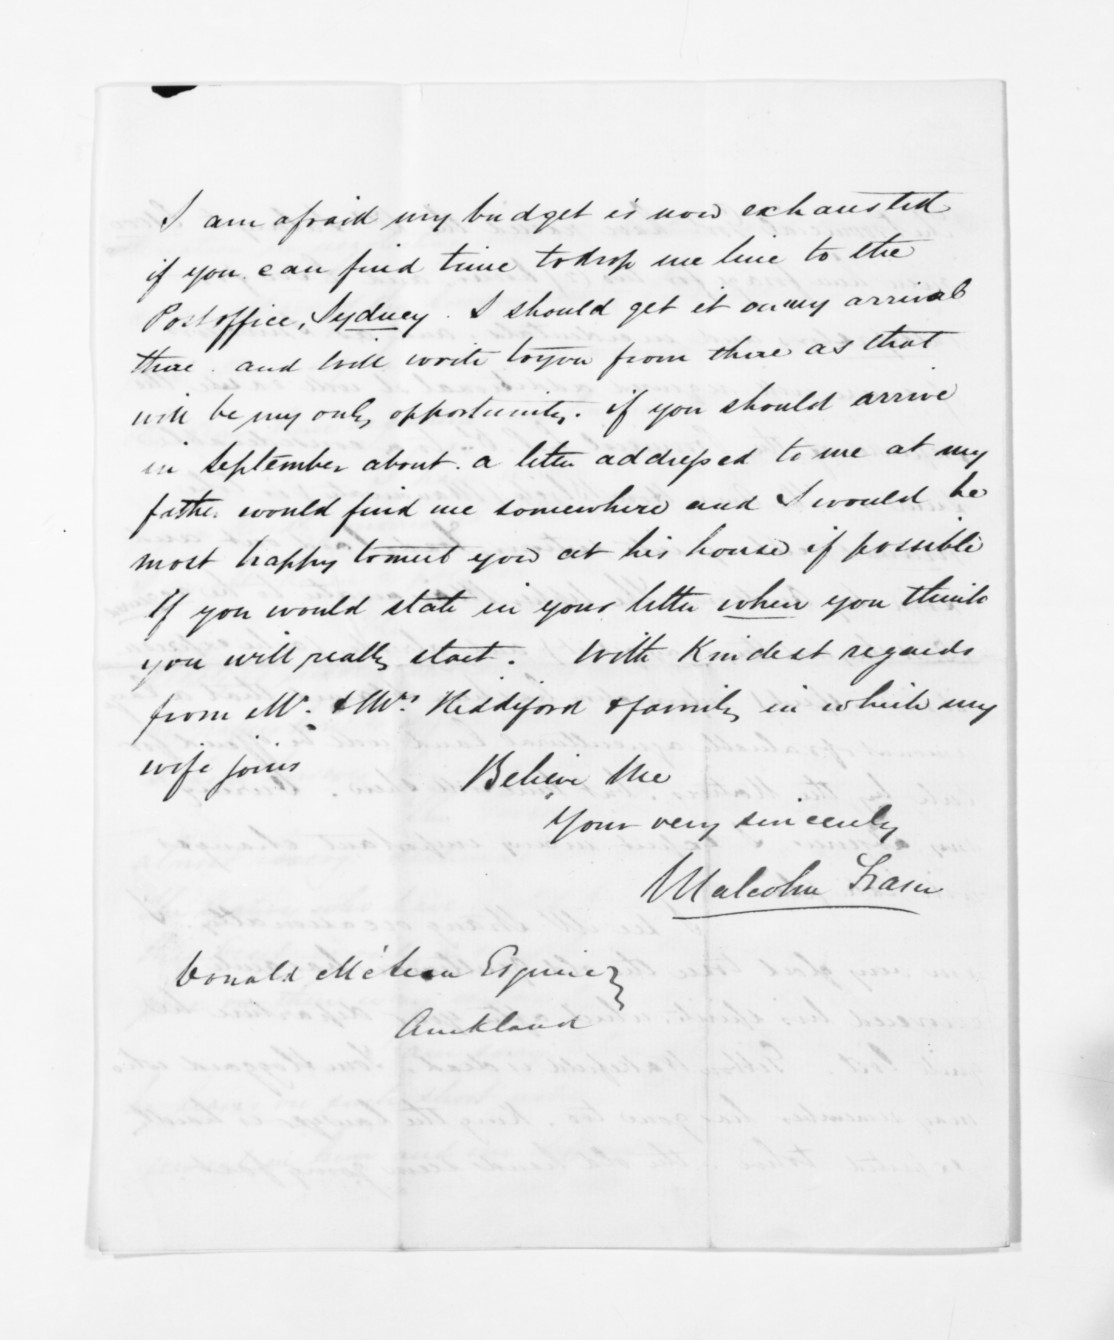 I am afraid my budget is now exhausted
if you can find time to drop me line to the
Post office, Sydney. I should get it on my arrival
there. and will write to you from there as that
will be my only opportunity. if you should arrive
in September about. a letter addressed to me at my
father would find me somewhere and I would be
most happy to meet you at his house if possible
If you would state in your letter when you think
you will really start. With Kindest regards
from Mr. & Mrs Hiddiford & family in which my
wife joins
Believe Me
Your very sincerely
Malcolm Fraser
Donald McLean Esquire
Auckland